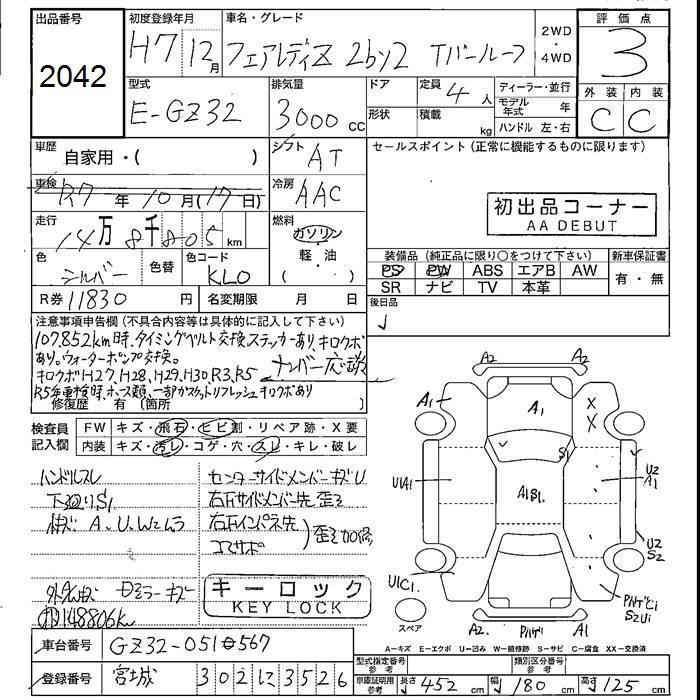 出品番号
2042
初度登録年月
H7 12月
車名・グレード
フェアレディZ 2by2 Tバールーフ
2WD
・
4WD
評価点
3
外装 内装
C C
型式
E-GZ32
排気量
3000 cc
ドア
形状
定員 4 人
積載 kg
ディーラー・並行
モデル年式 年
ハンドル 左・右
車歴
自家用・( )
シフト AT
セールスポイント (正常に機能するものに限ります)
車検 R7 年 10 月(17日)
冷房 AAC
初出品コーナー
AA DEBUT
走行
14万8千805 km
燃料
ガソリン
・
軽・油
( )
装備品 (純正品に限り○をつけて下さい)
新車保証書
PS PW ABS エアB AW
SR ナビ TV 本革
有・無
色
シルバー
色替
色コード
KL0
後日品
R券 11830 円
名変期限 月 日
注意事項申告欄 (不具合内容等は具体的に記入して下さい)
107,852km時、タイミングベルト交換ステッカーあり、キロクボ
あり。ウォーターポンプ交換。
ナンバー応談
キロクボH27、H28、H29、H30、R3、R5
R5年車検時、ホース類、一部ガスケットリフレッシュキロクボあり
修復歴 有 (箇所 )
検査員
記入欄
FW キズ・飛石・ヒビ割・リペア跡・X要
内装 キズ・汚レ・コゲ・穴・スレ・キレ・破レ
ハンドルスレ
下廻りS1
センターサイドメンバーキズU
右下サイドメンバー先歪ミ
右下インパネ先
コアサポ
キーロック
KEY LOCK
148806k
A2 A2
A1 A1 X
X
S1
U1A1 A1S1 U2
A1
U2
S2
U1C1
スペア
A2 A1
S2U1
A=キズ E=エクボ U=凹み W=補修跡 S=サビ C=腐食 XX=交換済
車台番号 GZ32-051567
登録番号 宮城 302 に 3526
型式指定番号
参考
類別区分番号
参考
車庫証明用
参考
長さ 452 cm 幅 180 cm 高さ 125 cm